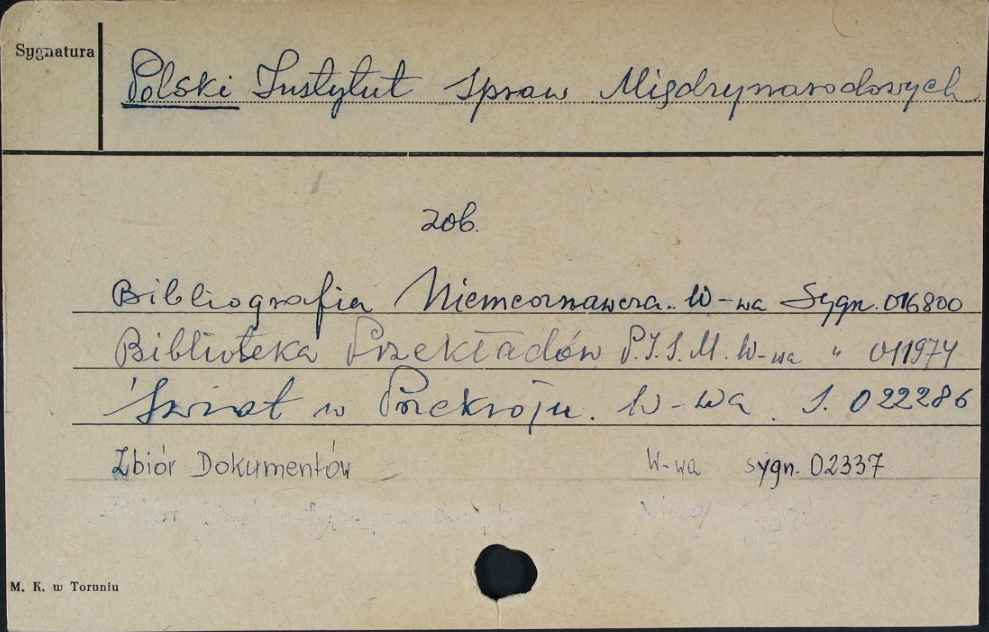 Sygnatura
Polski Instytut Spraw Międzynarodowych
zob.
Bibliografia Niemcoznawcza. W-wa Sygn. 016800
Biblioteka Przekładów P.I.S.M. W-wa " 011974
Świat w Przekroju. W-wa. S. 022286
Zbiór Dokumentów W-wa sygn. 02337
M. K. w Toruniu